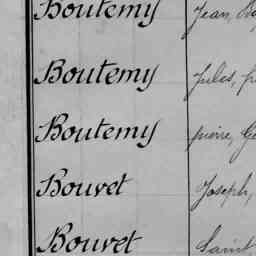 Boutemy Jean,
Boutemy Jules,
Boutemy pierre,
Bouvet Joseph,
Bouvet Saint